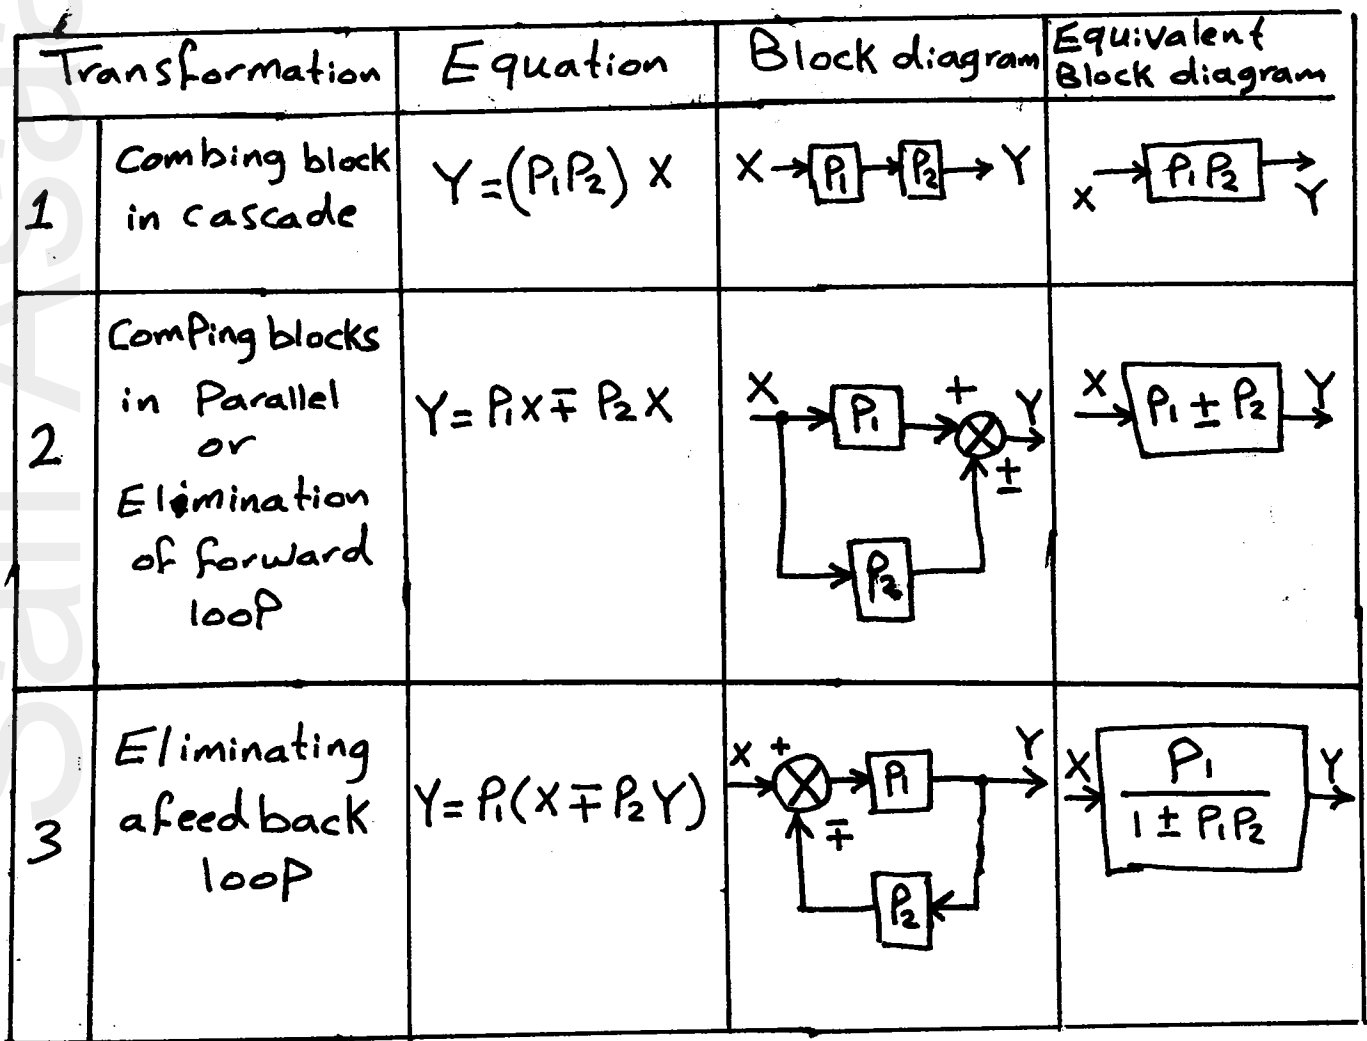 Transformation
Equation
Block diagram
Equivalent
Block diagram
1
Combing block
in cascade
Y = (P₁P₂) X
X P₁ P₂ Y
X P₁P₂ Y
2
Comping blocks
in Parallel
or
Elimination
of forward
loop
Y = P₁X ∓ P₂X
X P₁ + Y
±
P₂
X P₁ ± P₂ Y
3
Eliminating
a feed back
loop
Y = P₁(X ∓ P₂Y)
X + P₁ Y
∓
P₂
X P₁ Y
1 ± P₁P₂